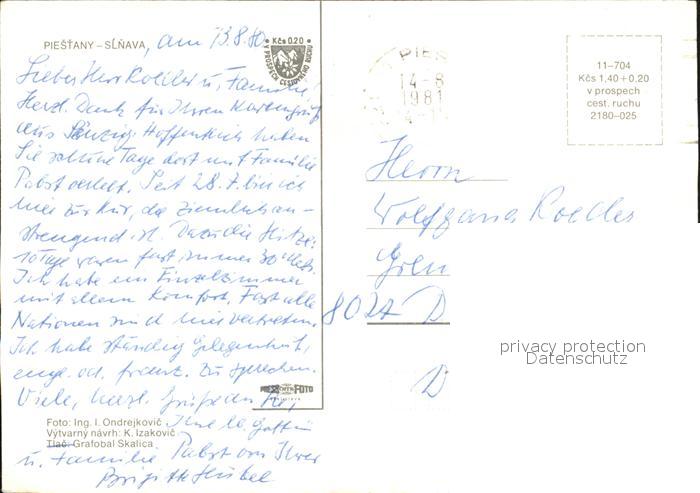 PIEŠŤANY – SĹŇAVA, am 13.8.80
Kčs 0.20
V PROSPĚCH CESTOVNÍHO RUCHU
Lieber Herr Roedler u. Familie!
Herzl. Dank für Ihren Kartengruß
aus Hoffentlich haben
Sie schöne Tage dort mit Familie
Pabst verlebt. Seit 28.7. bin ich
hier zur Kur, die ziemlich an-
strengend ist. Dazu die Hitze.
10 Tage waren fast immer 30°
Ich habe ein Einzelzimmer
mit allem Komfort. Fast alle
Nationen sind hier vertreten.
Ich habe ständig Gelegenheit,
engl. od. franz. zu sprechen.
Viele, herzl. Grüße an Sie,
Ihre Gattin
u. Familie Pabst von Ihrer
Brigitte Hübel
PRESSFOTO
Foto: Ing. I. Ondrejkovič
Výtvarný návrh: K. Izakovič
Tlač: Grafobal Skalica
PIEŠ
14-8
1981
11–704
Kčs 1,40+0,20
v prospech
cest. ruchu
2180–025
Herrn
Wolfgang Roedler
8027 D
D
privacy protection
Datenschutz